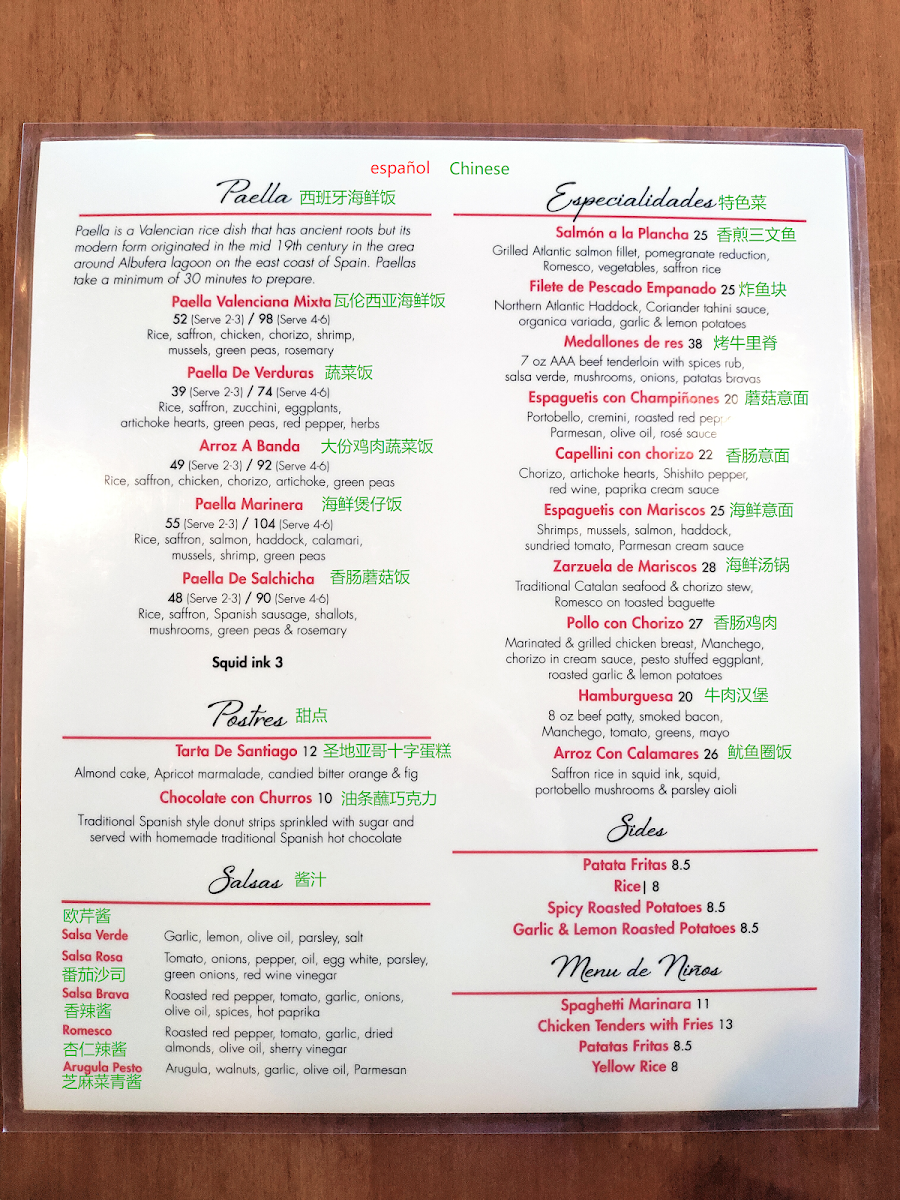 español Chinese
Paella 西班牙海鲜饭
Paella is a Valencian rice dish that has ancient roots but its
modern form originated in the mid 19th century in the area
around Albufera lagoon on the east coast of Spain. Paellas
take a minimum of 30 minutes to prepare.
Paella Valenciana Mixta 瓦伦西亚海鲜饭
52 (Serve 2-3) / 98 (Serve 4-6)
Rice, saffron, chicken, chorizo, shrimp,
mussels, green peas, rosemary
Paella De Verduras 蔬菜饭
39 (Serve 2-3) / 74 (Serve 4-6)
Rice, saffron, zucchini, eggplants,
artichoke hearts, green peas, red pepper, herbs
Arroz A Banda 大份鸡肉蔬菜饭
49 (Serve 2-3) / 92 (Serve 4-6)
Rice, saffron, chicken, chorizo, artichoke, green peas
Paella Marinera 海鲜煲仔饭
55 (Serve 2-3) / 104 (Serve 4-6)
Rice, saffron, salmon, haddock, calamari,
mussels, shrimp, green peas
Paella De Salchicha 香肠蘑菇饭
48 (Serve 2-3) / 90 (Serve 4-6)
Rice, saffron, Spanish sausage, shallots,
mushrooms, green peas & rosemary
Squid ink 3
Postres 甜点
Tarta De Santiago 12 圣地亚哥十字蛋糕
Almond cake, Apricot marmalade, candied bitter orange & fig
Chocolate con Churros 10 油条蘸巧克力
Traditional Spanish style donut strips sprinkled with sugar and
served with homemade traditional Spanish hot chocolate
Salsas 酱汁
欧芹酱
Salsa Verde Garlic, lemon, olive oil, parsley, salt
Salsa Rosa Tomato, onions, pepper, oil, egg white, parsley,
番茄沙司 green onions, red wine vinegar
Salsa Brava Roasted red pepper, tomato, garlic, onions,
香辣酱 olive oil, spices, hot paprika
Romesco Roasted red pepper, tomato, garlic, dried
杏仁辣酱 almonds, olive oil, sherry vinegar
Arugula Pesto Arugula, walnuts, garlic, olive oil, Parmesan
芝麻菜青酱
Especialidades 特色菜
Salmón a la Plancha 25 香煎三文鱼
Grilled Atlantic salmon fillet, pomegranate reduction,
Romesco, vegetables, saffron rice
Filete de Pescado Empanado 25 炸鱼块
Northern Atlantic Haddock, Coriander tahini sauce,
organica variada, garlic & lemon potatoes
Medallones de res 38 烤牛里脊
7 oz AAA beef tenderloin with spices rub,
salsa verde, mushrooms, onions, patatas bravas
Espaguetis con Champiñones 20 蘑菇意面
Portobello, cremini, roasted red
Parmesan, olive oil, rosé sauce
Capellini con chorizo 22 香肠意面
Chorizo, artichoke hearts, Shishito pepper,
red wine, paprika cream sauce
Espaguetis con Mariscos 25 海鲜意面
Shrimps, mussels, salmon, haddock,
sundried tomato, Parmesan cream sauce
Zarzuela de Mariscos 28 海鲜汤锅
Traditional Catalan seafood & chorizo stew,
Romesco on toasted baguette
Pollo con Chorizo 27 香肠鸡肉
Marinated & grilled chicken breast, Manchego,
chorizo in cream sauce, pesto stuffed eggplant,
roasted garlic & lemon potatoes
Hamburguesa 20 牛肉汉堡
8 oz beef patty, smoked bacon,
Manchego, tomato, greens, mayo
Arroz Con Calamares 26 鱿鱼圈饭
Saffron rice in squid ink, squid,
portobello mushrooms & parsley aioli
Sides
Patata Fritas 8.5
Rice| 8
Spicy Roasted Potatoes 8.5
Garlic & Lemon Roasted Potatoes 8.5
Menu de Niños
Spaghetti Marinara 11
Chicken Tenders with Fries 13
Patatas Fritas 8.5
Yellow Rice 8